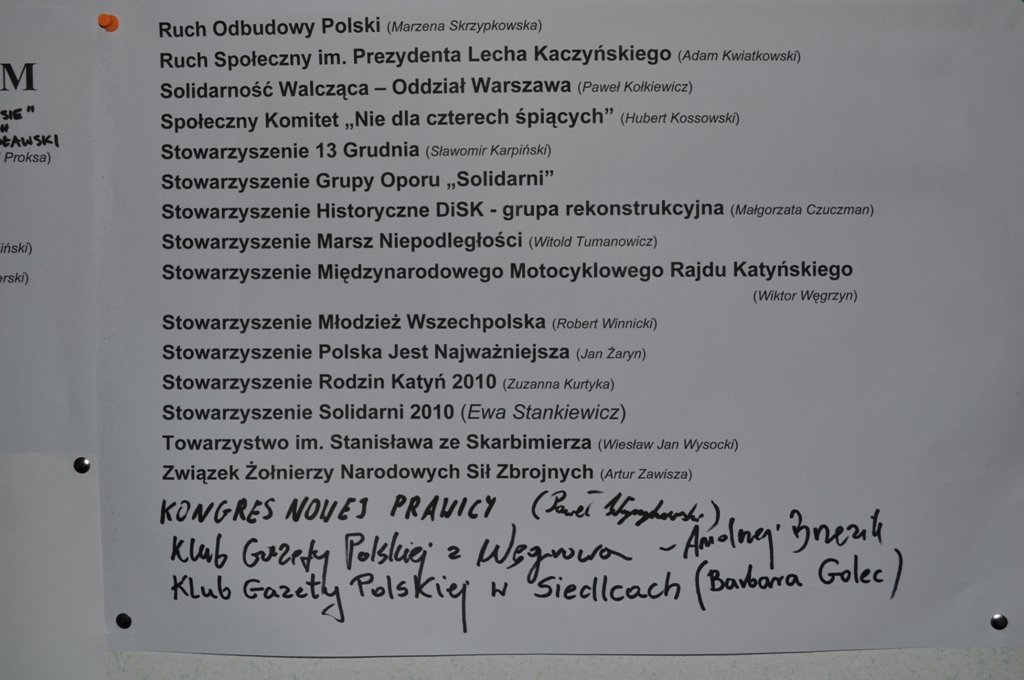 M
SIE"
ŁAWSKI
Proksa)
iński)
erski)
Ruch Odbudowy Polski (Marzena Skrzypkowska)
Ruch Społeczny im. Prezydenta Lecha Kaczyńskiego (Adam Kwiatkowski)
Solidarność Walcząca – Oddział Warszawa (Paweł Kołkiewicz)
Społeczny Komitet „Nie dla czterech śpiących” (Hubert Kossowski)
Stowarzyszenie 13 Grudnia (Sławomir Karpiński)
Stowarzyszenie Grupy Oporu „Solidarni”
Stowarzyszenie Historyczne DiSK - grupa rekonstrukcyjna (Małgorzata Czuczman)
Stowarzyszenie Marsz Niepodległości (Witold Tumanowicz)
Stowarzyszenie Międzynarodowego Motocyklowego Rajdu Katyńskiego
(Wiktor Węgrzyn)
Stowarzyszenie Młodzież Wszechpolska (Robert Winnicki)
Stowarzyszenie Polska Jest Najważniejsza (Jan Żaryn)
Stowarzyszenie Rodzin Katyń 2010 (Zuzanna Kurtyka)
Stowarzyszenie Solidarni 2010 (Ewa Stankiewicz)
Towarzystwo im. Stanisława ze Skarbimierza (Wiesław Jan Wysocki)
Związek Żołnierzy Narodowych Sił Zbrojnych (Artur Zawisza)
KONGRES NOWEJ PRAWICY (Paweł
Klub Gazety Polskiej z Węgrowa – Andrzej
Klub Gazety Polskiej w Siedlcach (Barbara Golec)